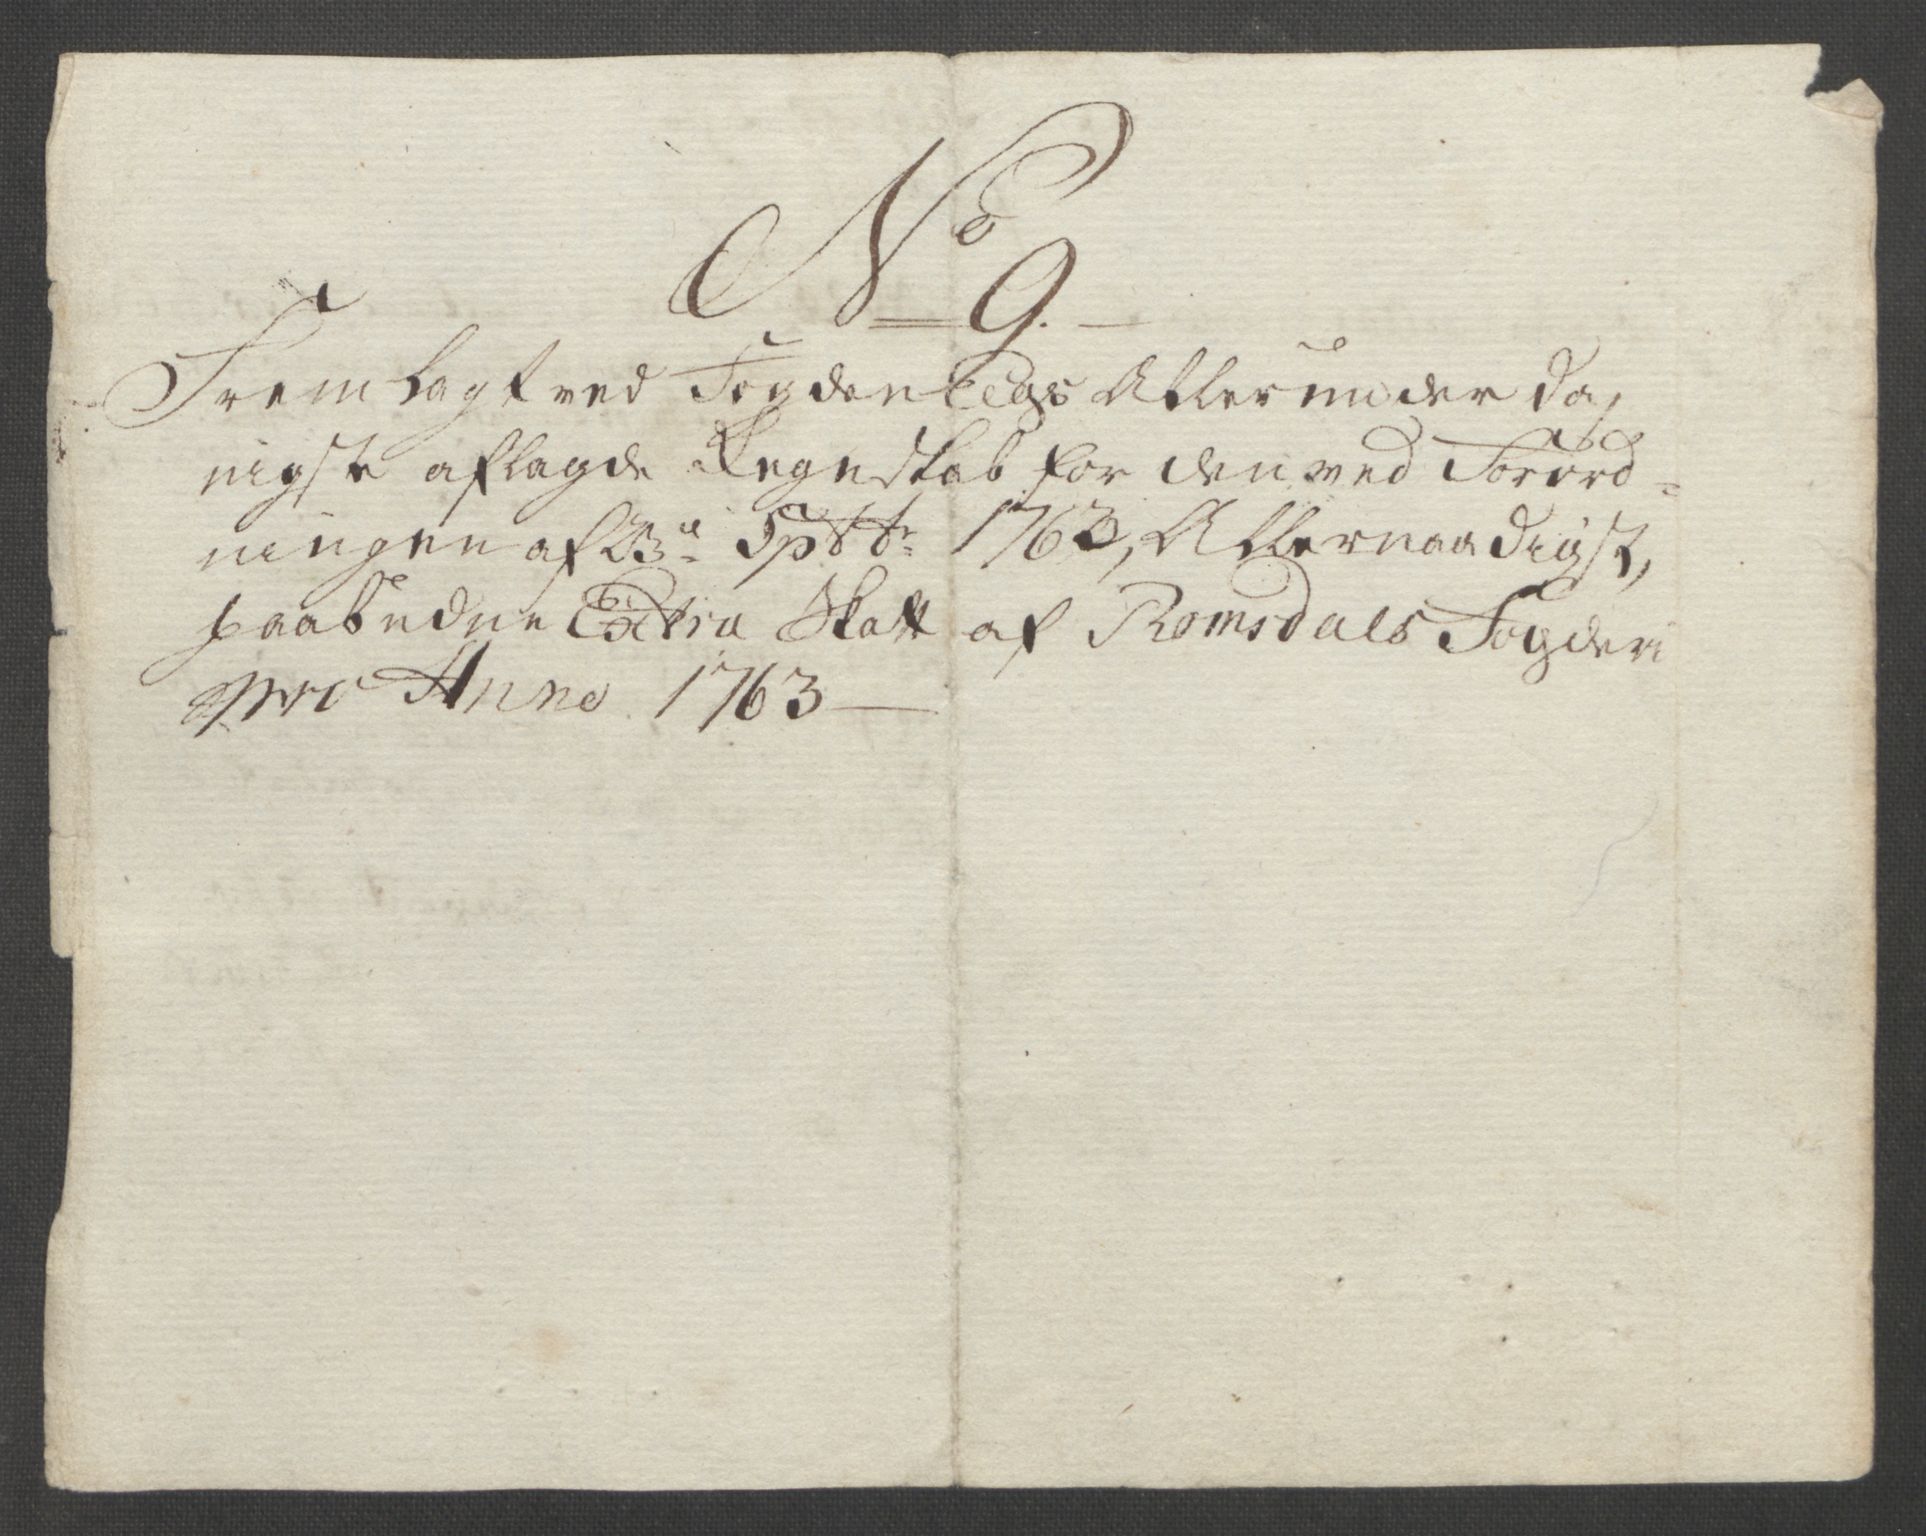 No 9.
Fremlagt ved Fogden Eegs Allerunderda,
nigste aflagde Regnskab for den ved Forord=
ningen af 23de Sptbr 1762, Allernaadigst,
paabudne Extra Skatt af Romsdals Fogderi
pro Anno 1763